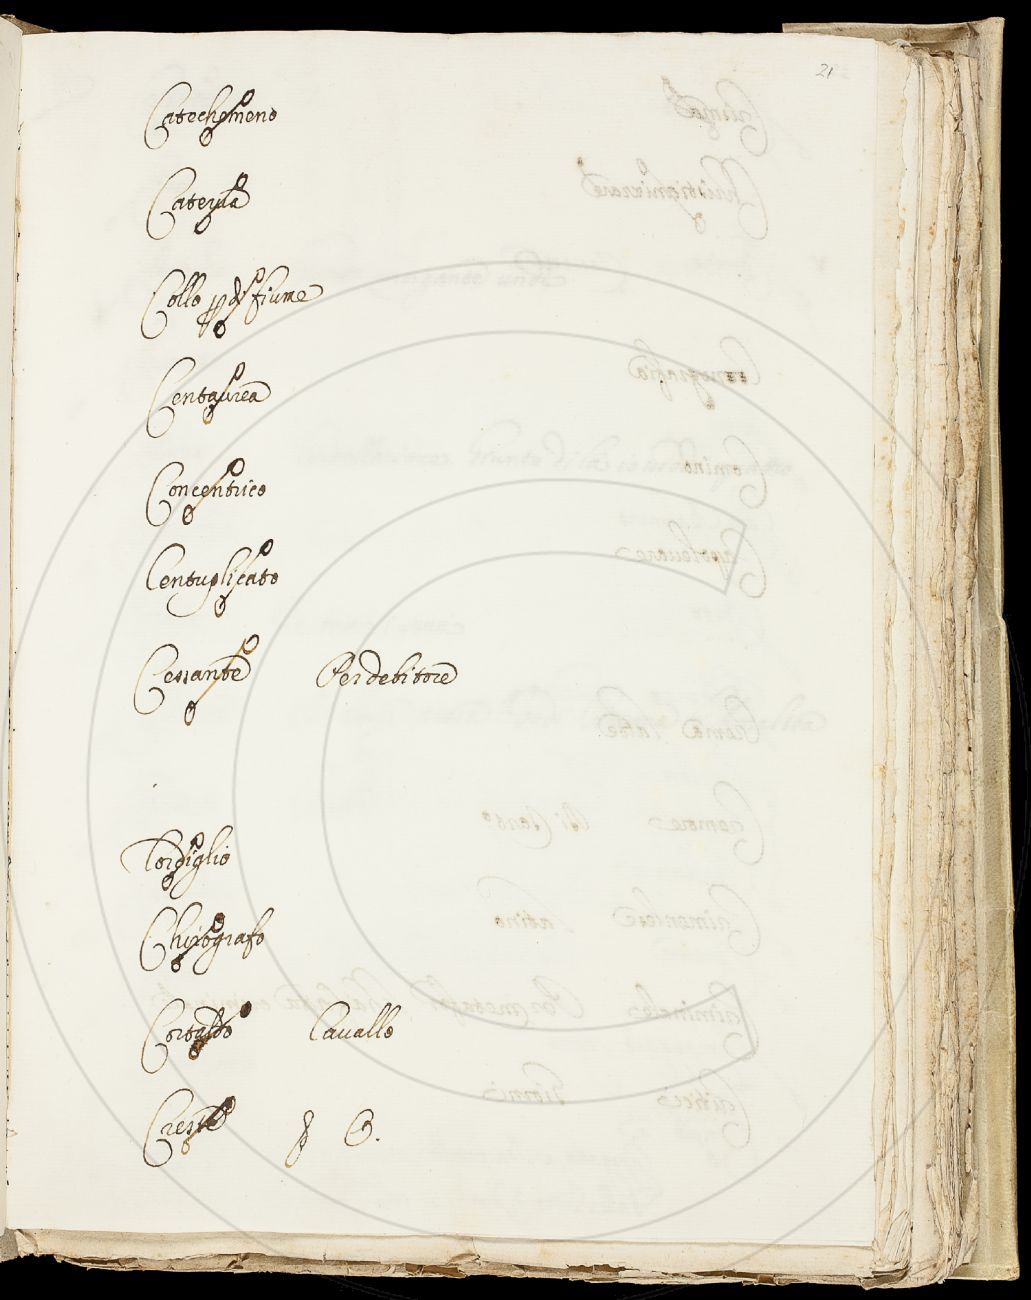 21
Catechomeno
Caterua
Collo p di fiume
Centaurea
Concentrico
Centuplicato
Cessante Per debitore
Cordiglio
Chirografo
Cortaldo Cavallo
C.